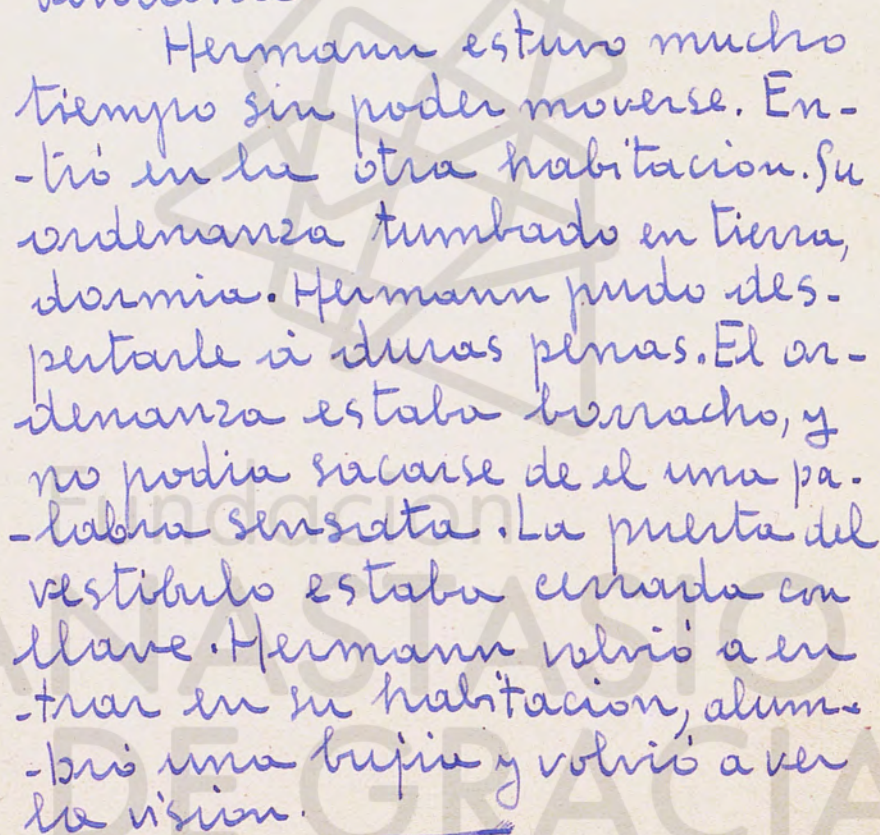 Hermann estuvo mucho
tiempo sin poder moverse. En-
-tró en la otra habitacion. Su
ordenanza tumbado en tierra,
dormia. Hermann pudo des-
pertarle á duras penas. El or-
denanza estaba borracho, y
no podia sacarse de el una pa-
-labra sensata. La puerta del
vestibulo estaba cerrada con
llave. Hermann volvió a en
-trar en su habitacion, alum-
-bró una bujia y volvió a ver
la vision.
Fundación
ANASTASIO
DE GRACIA